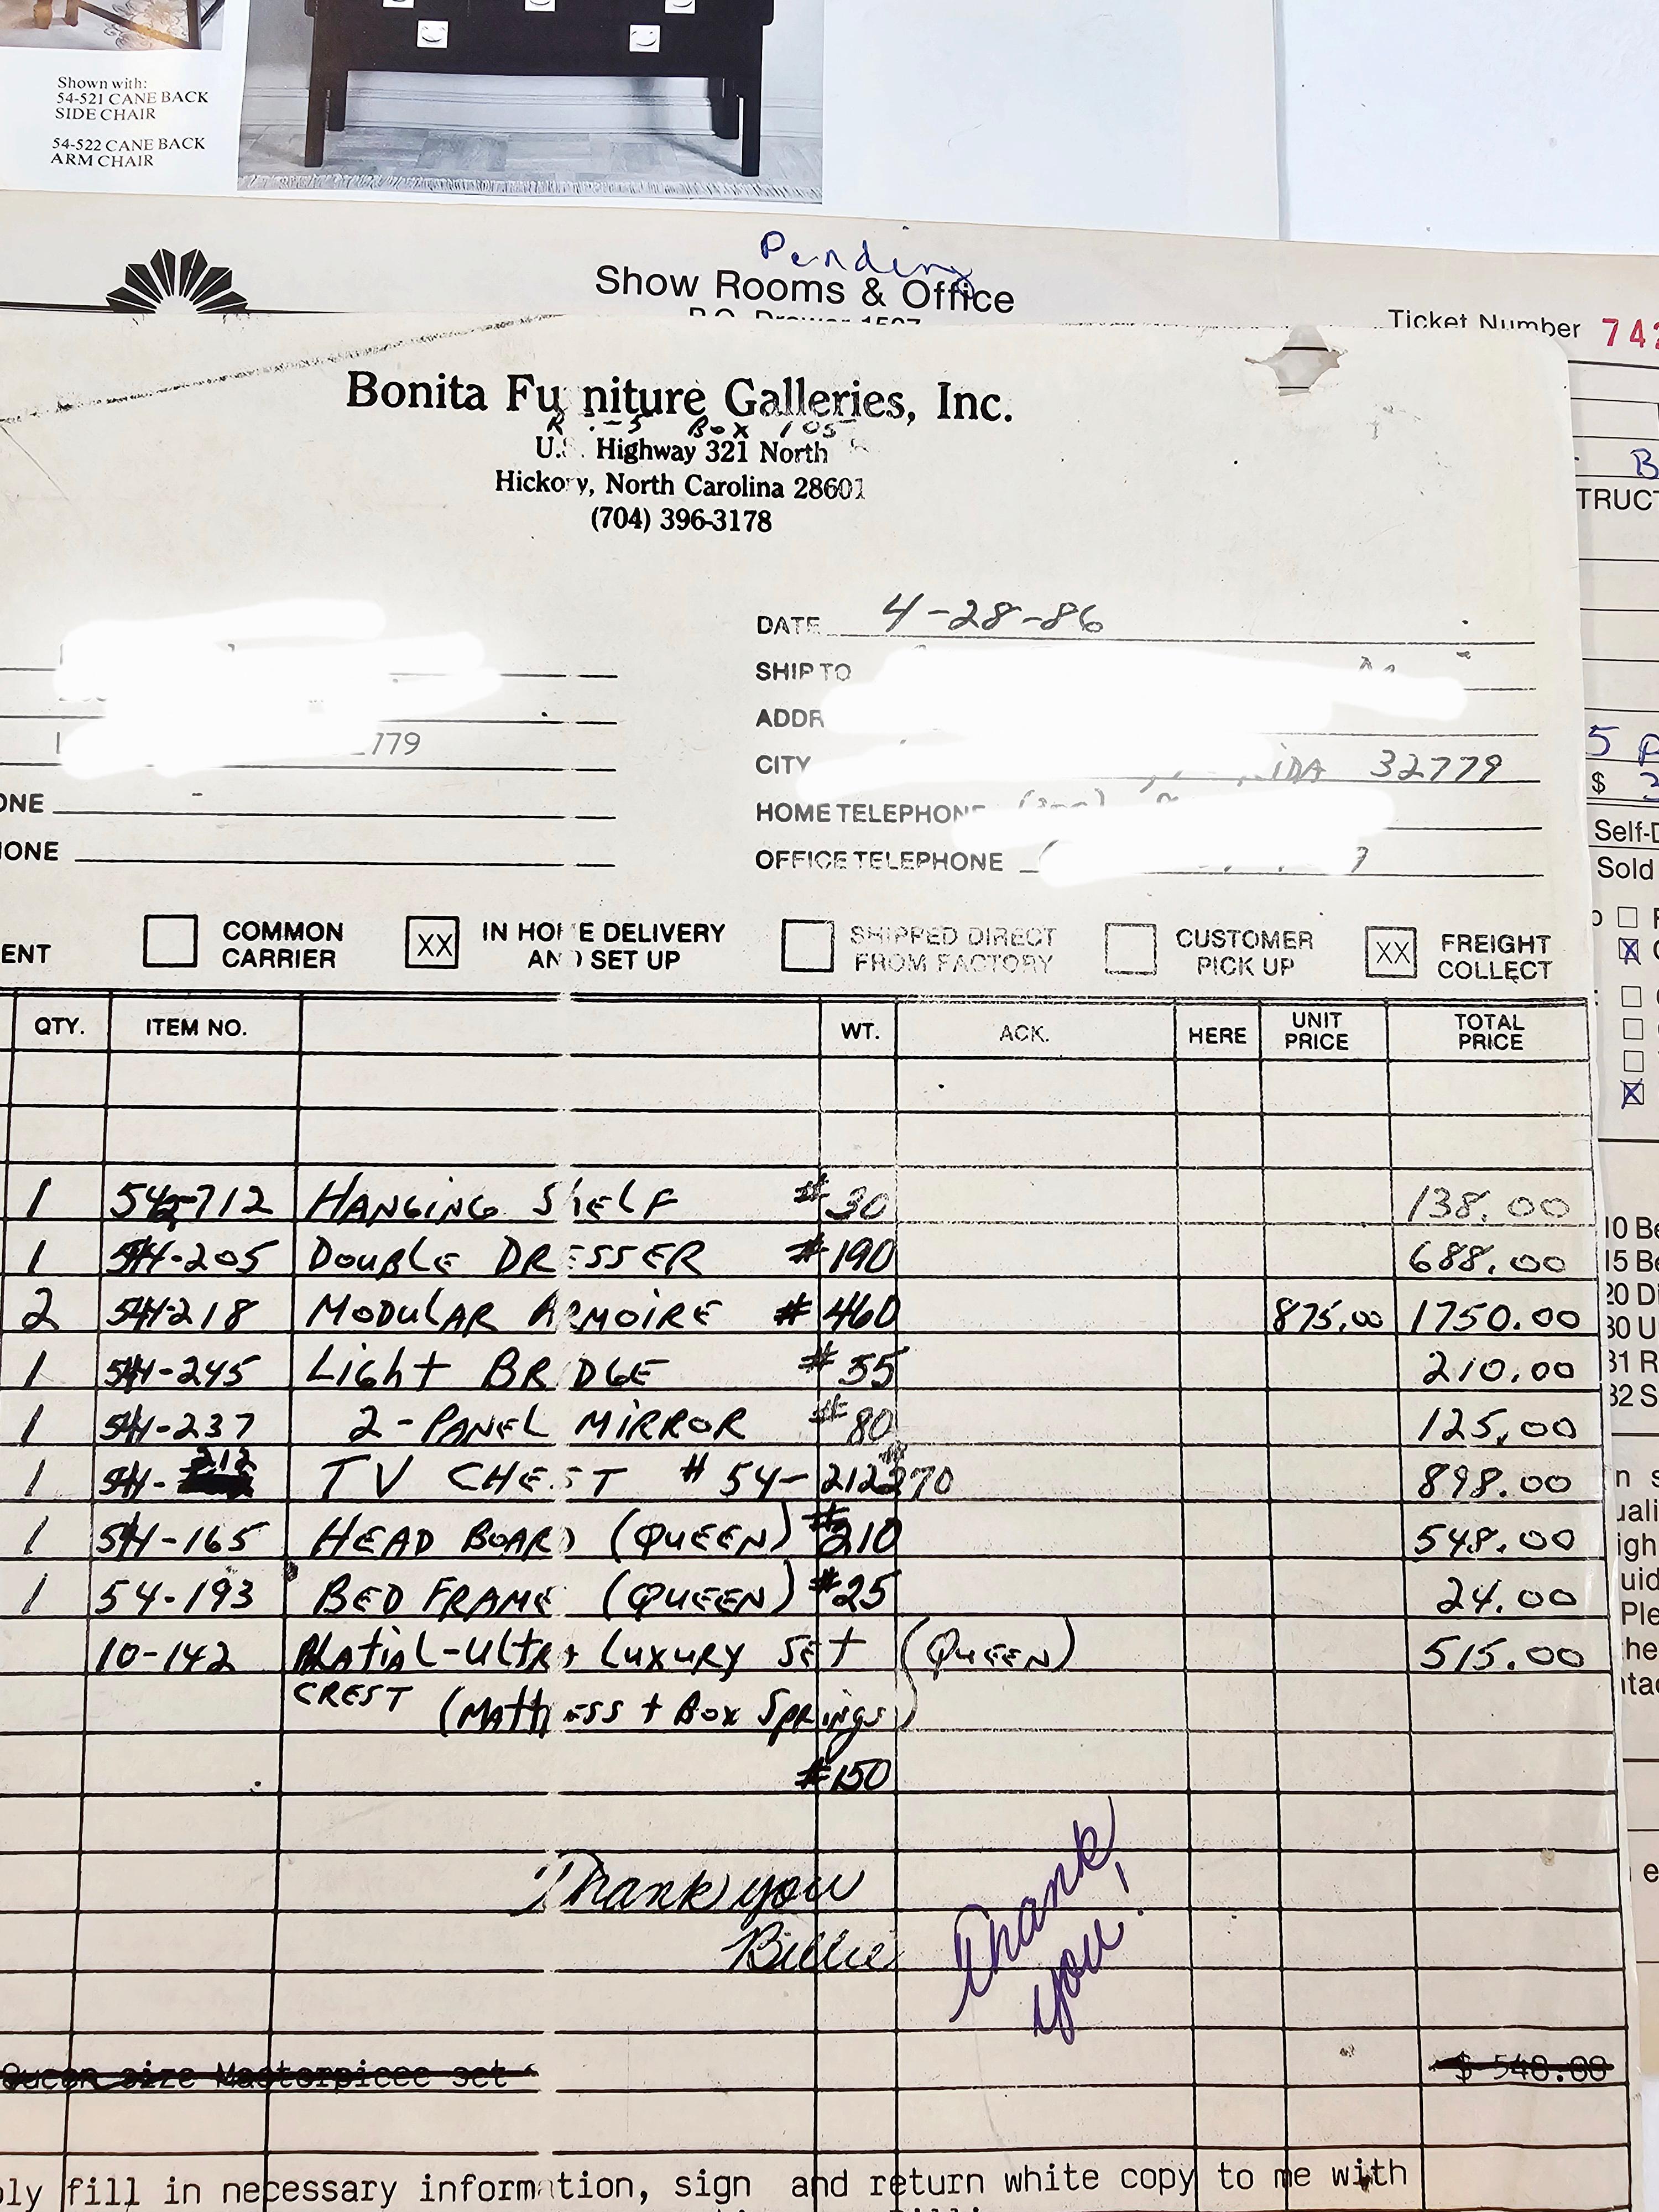 Shown with:
54-521 CANE BACK
SIDE CHAIR
54-522 CANE BACK
ARM CHAIR
Pending
Show Rooms & Office
P.O. Drawer 1507
Ticket Number 74
Bonita Furniture Galleries, Inc.
Box 105
U.S. Highway 321 North
Hickory, North Carolina 28601
(704) 396-3178
DATE 4-28-86
SHIP TO
ADDR
779
CITY IDA 32779
ONE
HOME TELEPHONE
HONE
OFFICE TELEPHONE
ENT
COMMON
CARRIER
XX
IN HOME DELIVERY
AND SET UP
SHIPPED DIRECT
FROM FACTORY
CUSTOMER
PICK UP
XX
FREIGHT
COLLECT
QTY. ITEM NO. WT. ACK. HERE UNIT PRICE TOTAL PRICE
1 54-712 HANGING SHELF #30 138.00
1 54-205 DOUBLE DRESSER #190 688.00
2 54-218 MODULAR ARMOIRE #460 875.00 1750.00
1 54-245 Light BRIDGE #55 210.00
1 54-237 2-PANEL MIRROR #80 125.00
1 54-212 TV CHEST #54-212 #270 898.00
1 54-165 HEAD BOARD (QUEEN) #210 548.00
1 54-193 BED FRAME (QUEEN) #25 24.00
10-142 PLATIAL-ULTRA LUXURY SET (QUEEN) 515.00
CREST (MATTRESS + BOX SPRINGS)
#150
Thank you
Billie
Thank
you!
Queen size Masterpiece set $ 540.00
ply fill in necessary information, sign and return white copy to me with
B
TRUCT
5 P
$
Self-D
Sold
10 Be
15 Be
20 Di
30 U
31 R
32 S